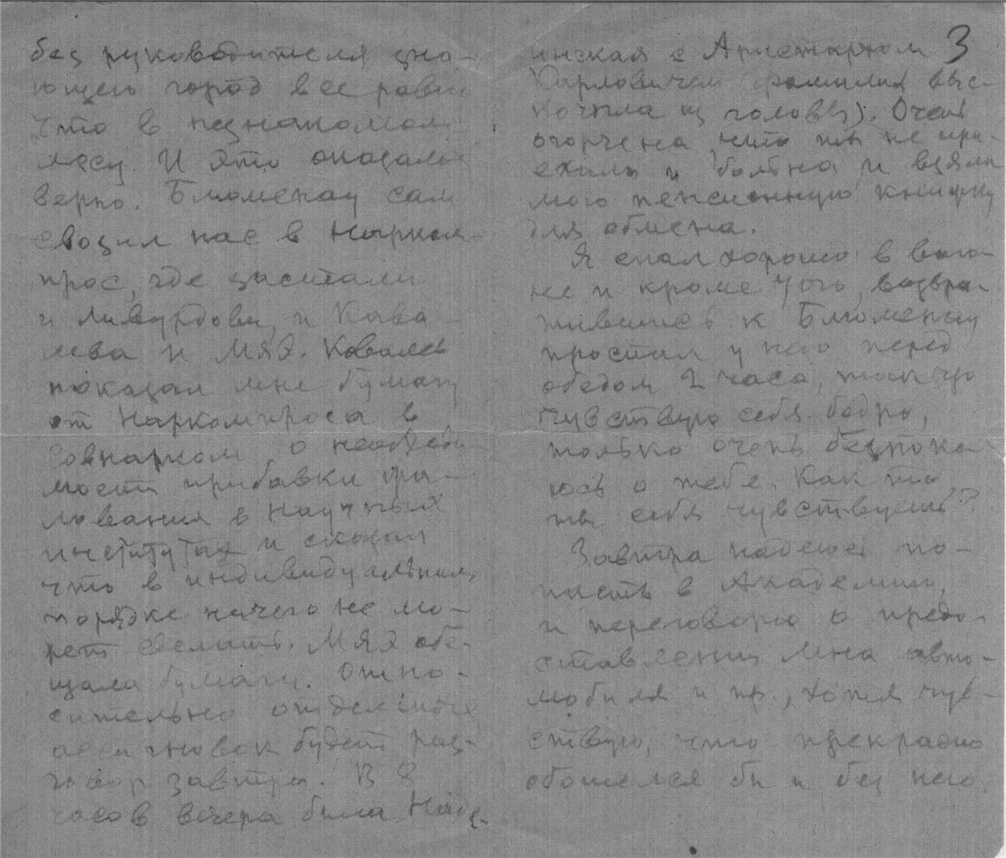 без руководителя зна-
ющего город все равно
что в незнакомом
лесу. И это оказалось
верно. Блюменау сам
сводил нас в Нарком-
прос, где застали
и и Кова-
лева и МЯЭ. Ковалев
показал мне бумагу
от Наркомпроса в
Совнарком о необходи-
мости прибавки жа-
лования в Научных
институтах и сказал
что в индивидуальном
порядке ничего не мо-
жет сделать. МЯЭ обе-
щала бумагу. Отно-
сительно отдельных
ассигновок будет раз-
говор завтра. В 8
часов вечера была Наде-
3
инская с Аристархом
Карловичем фамилия выс-
кочила из головы). Очень
огорчена что ты не при-
ехала и больна и взяла
мою пенсионную книжку
для обмена.
Я спал хорошо в ваго-
не и кроме того, возвра-
тившись к Блюменау
проспал у него перед
обедом 2 часа, так что
чувствую себя бодро,
только очень безпоко-
юсь о тебе. Как то
ты себя чувствуешь?
Завтра надеюсь по-
пасть в Академию,
и переговорю о предо-
ставлении мне авто-
мобиля и пр., хотя чув-
ствую, что прекрасно
обошелся бы и без него.